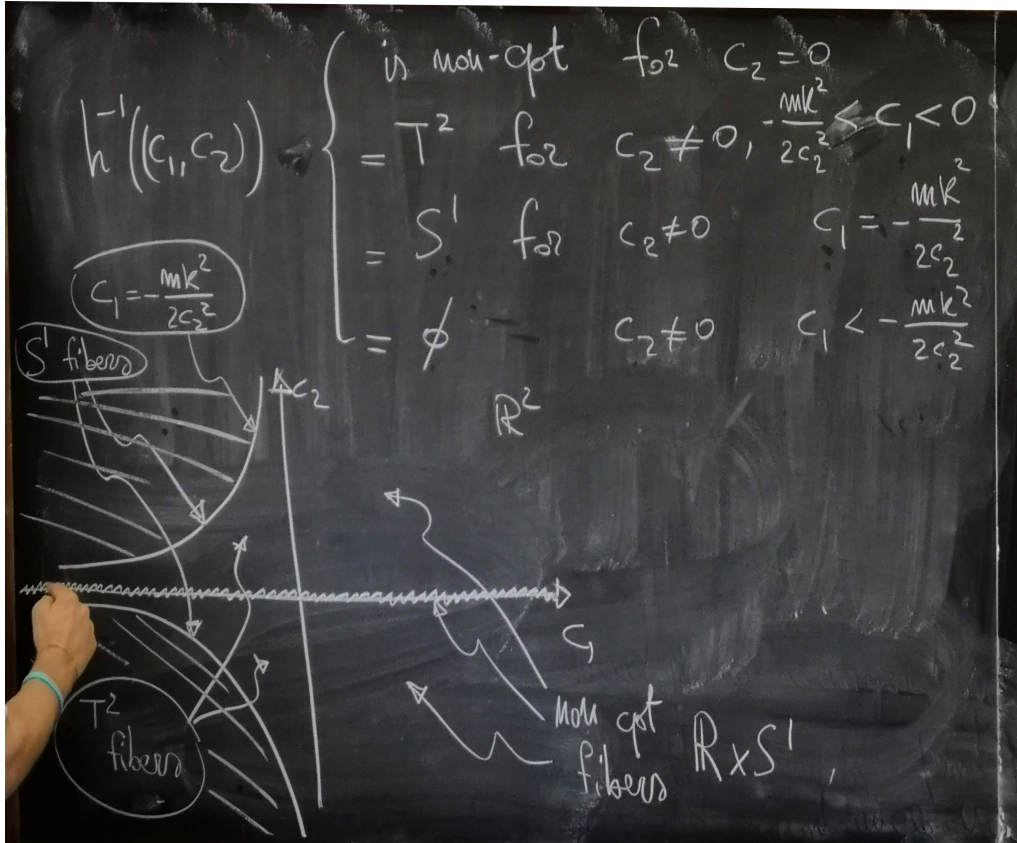 h⁻¹((c₁,c₂)) { is non-cpt for c₂ = 0
= T² for c₂ ≠ 0, -mk²/2c₂² < c₁ < 0
= S¹ for c₂ ≠ 0 c₁ = -mk²/2c₂²
= ϕ c₂ ≠ 0 c₁ < -mk²/2c₂²
c₁ = -mk²/2c₂²
S¹ fibers
c₂
ℝ²
c₁
T²
fibers
non cpt
fibers ℝ×S¹,